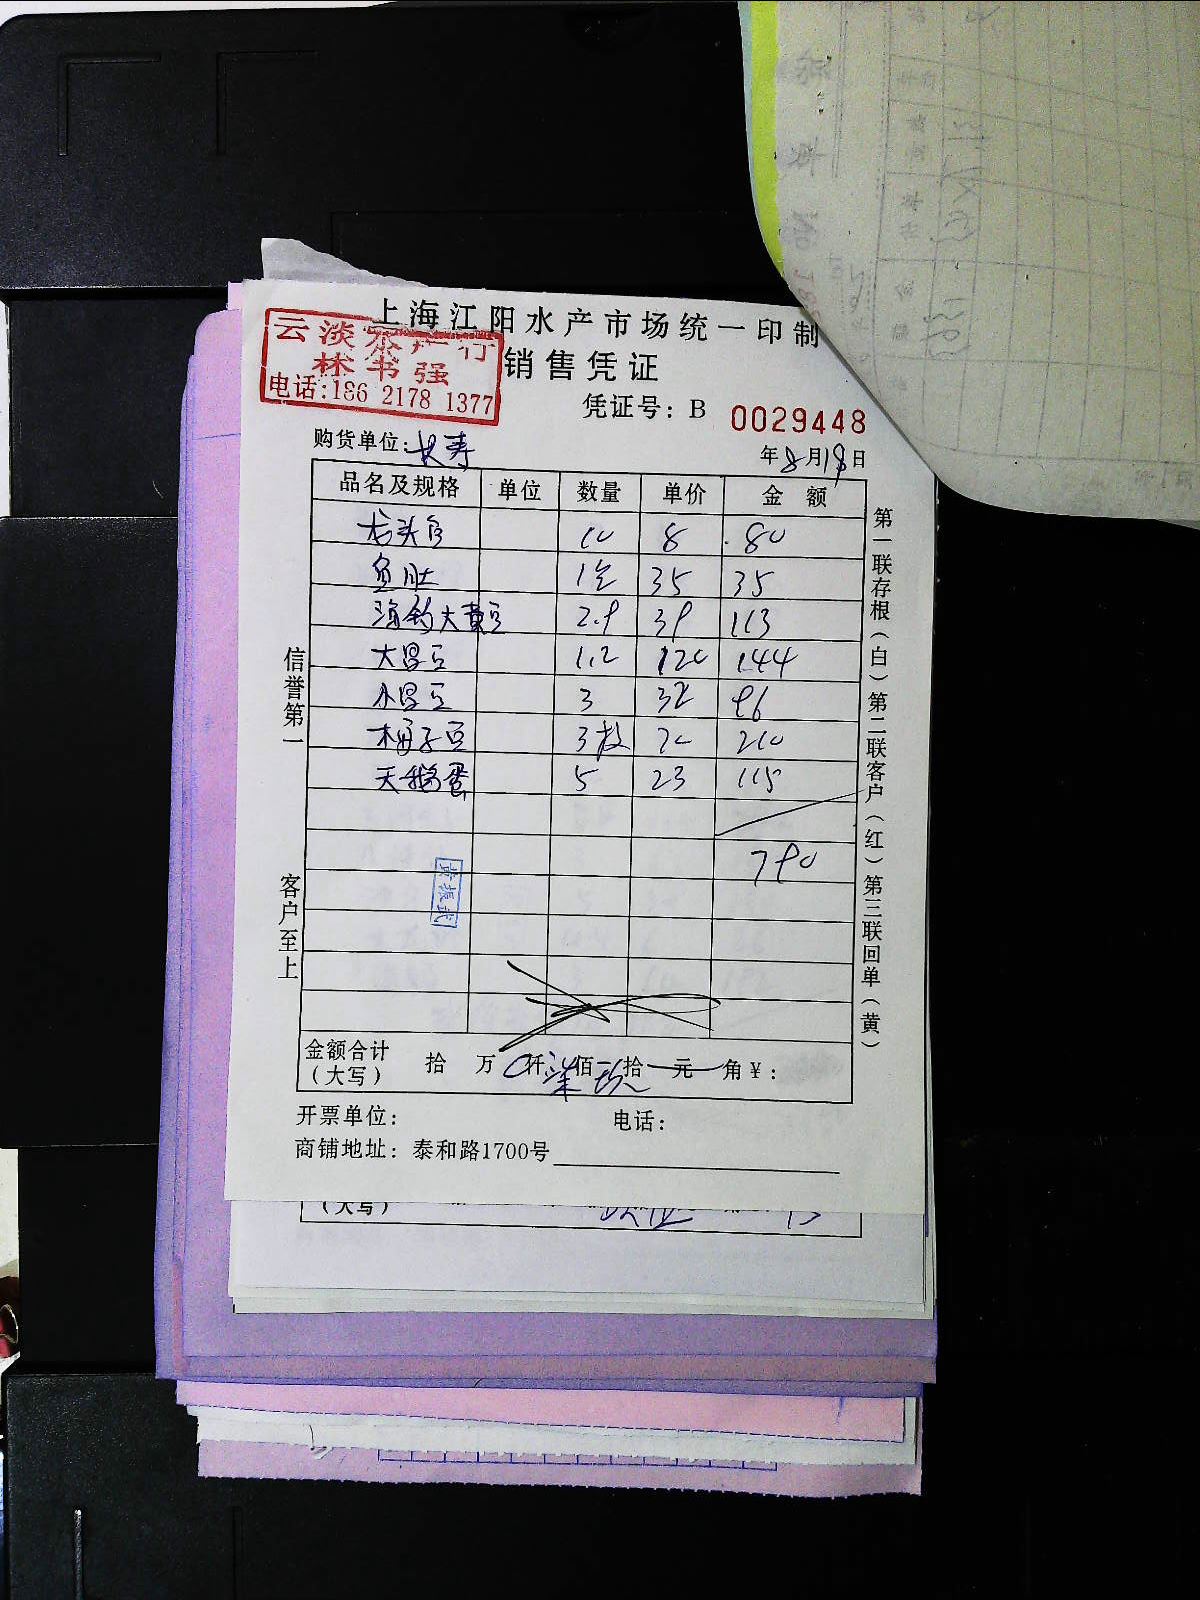 上海江阳水产市场统一印制
云淡水产行
林书强
电话:186 2178 1377
销售凭证
凭证号: B 0029448
购货单位: 长寿
年8月18日
品名及规格 单位 数量 单价 金额
龙头鱼 10 8 80
鱼肚 1包 35 35
海钓大黄鱼 2.9 39 113
大昌鱼 1.2 120 144
小昌鱼 3 32 96
梅子鱼 3板 70 210
天鹅蛋 5 23 115
790
信誉第一
客户至上
第一联存根(白)第二联客户(红)第三联回单(黄)
金额合计
(大写) 拾 万 仟 佰 拾 元 角 ¥:
开票单位: 电话:
商铺地址: 泰和路1700号
(大写)